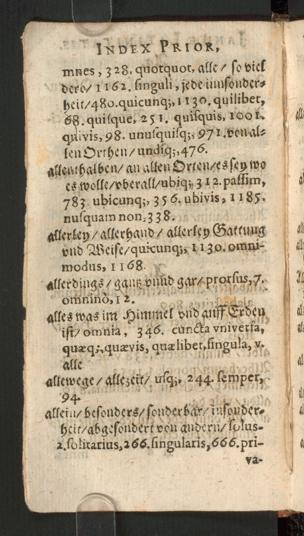 INDEX PRIOR,
mnes, 328. quotquot. alle/ so viel
dero/ 1162. singuli, jede innsonder-
heit/480. quicunq;, 1130. quilibet,
68. quisque, 251. quisquis, 1001.
quivis, 98. unusquisq;, 971. von al-
len Orthen/ undiq;, 476.
allenthalben/ an allen Orten/ es sey wo
es wolle/ vberall/ ubiq; 312. passim,
783. ubicunq;, 356. ubivis, 1185.
nusquam non, 338.
allerley/ allerhand/ allerley Gattung
vnd Weise/ quicunq;, 1130. omni-
modus, 1168.
allerdings/ gantz vnnd gar/ prorsus, 7.
omnino, 12.
alles was im Himmel vnd auff Erden
ist/ omnia, 346. cuncta vniversa,
quæq;, quævis, quælibet, singula, v.
alle
allewege/ allezeit/ usq;, 244. semper,
94.
allein/ besonders/ sonderbar/ insonder-
heit/ abgesondert von andern/ solus-
2. solitarius, 266. singularis, 666. pri-
va-